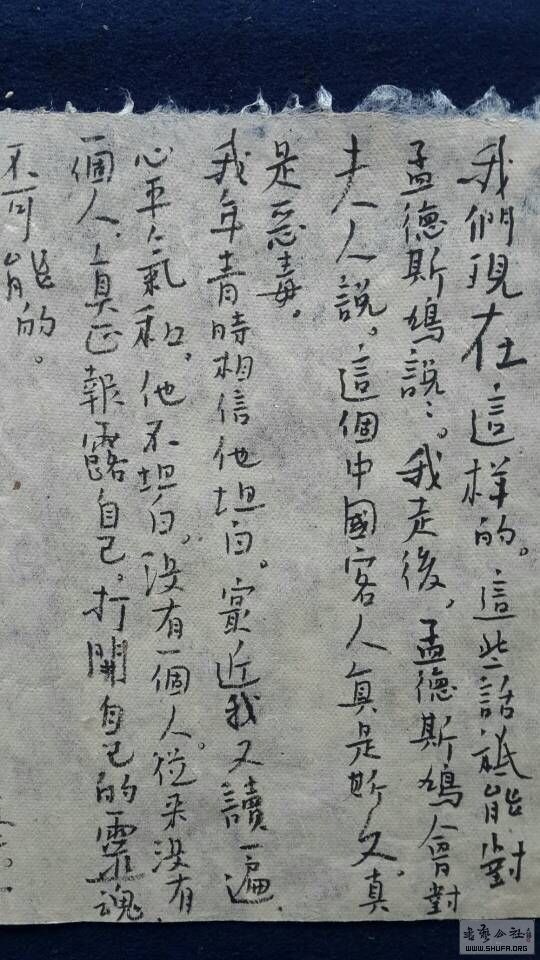 我們現在這樣的。這些話祗能對
孟德斯鳩說：。我走後，孟德斯鳩會對
夫人說。這個中國客人真是斯文。真
是惡毒。
我年青時相信他坦白。寂近我又讀一遍，
心平气和。他不坦白。沒有一個人。從来沒有
一個人，真正報露自己。打開自己的靈魂，
不可能的。
書藝公社
WWW.SHUFA.ORG